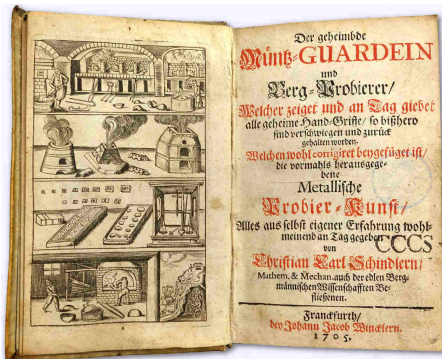 Der geheimbde
Müntz-GUARDEIN
und
Berg-Probierer/
Welcher zeiget und an Tag giebet
alle geheime Hand-Griffe/ so bißhero
sind verschwiegen und zurück
gehalten worden.
Welchen wohl corrigiret beygefüget ist/
die vormahls herausgege-
bene
Metallische
Probier-Kunst/
Alles aus selbst eigener Erfahrung wohl-
meinend an Tag gegeben
CCCS
von
Christian Carl Schindlern/
Mathem. & Mechan. auch der edlen Berg-
männischen Wissenschafften Be-
fließenen.
Franckfurth/
bey Johann Jacob Wincklern.
1705.